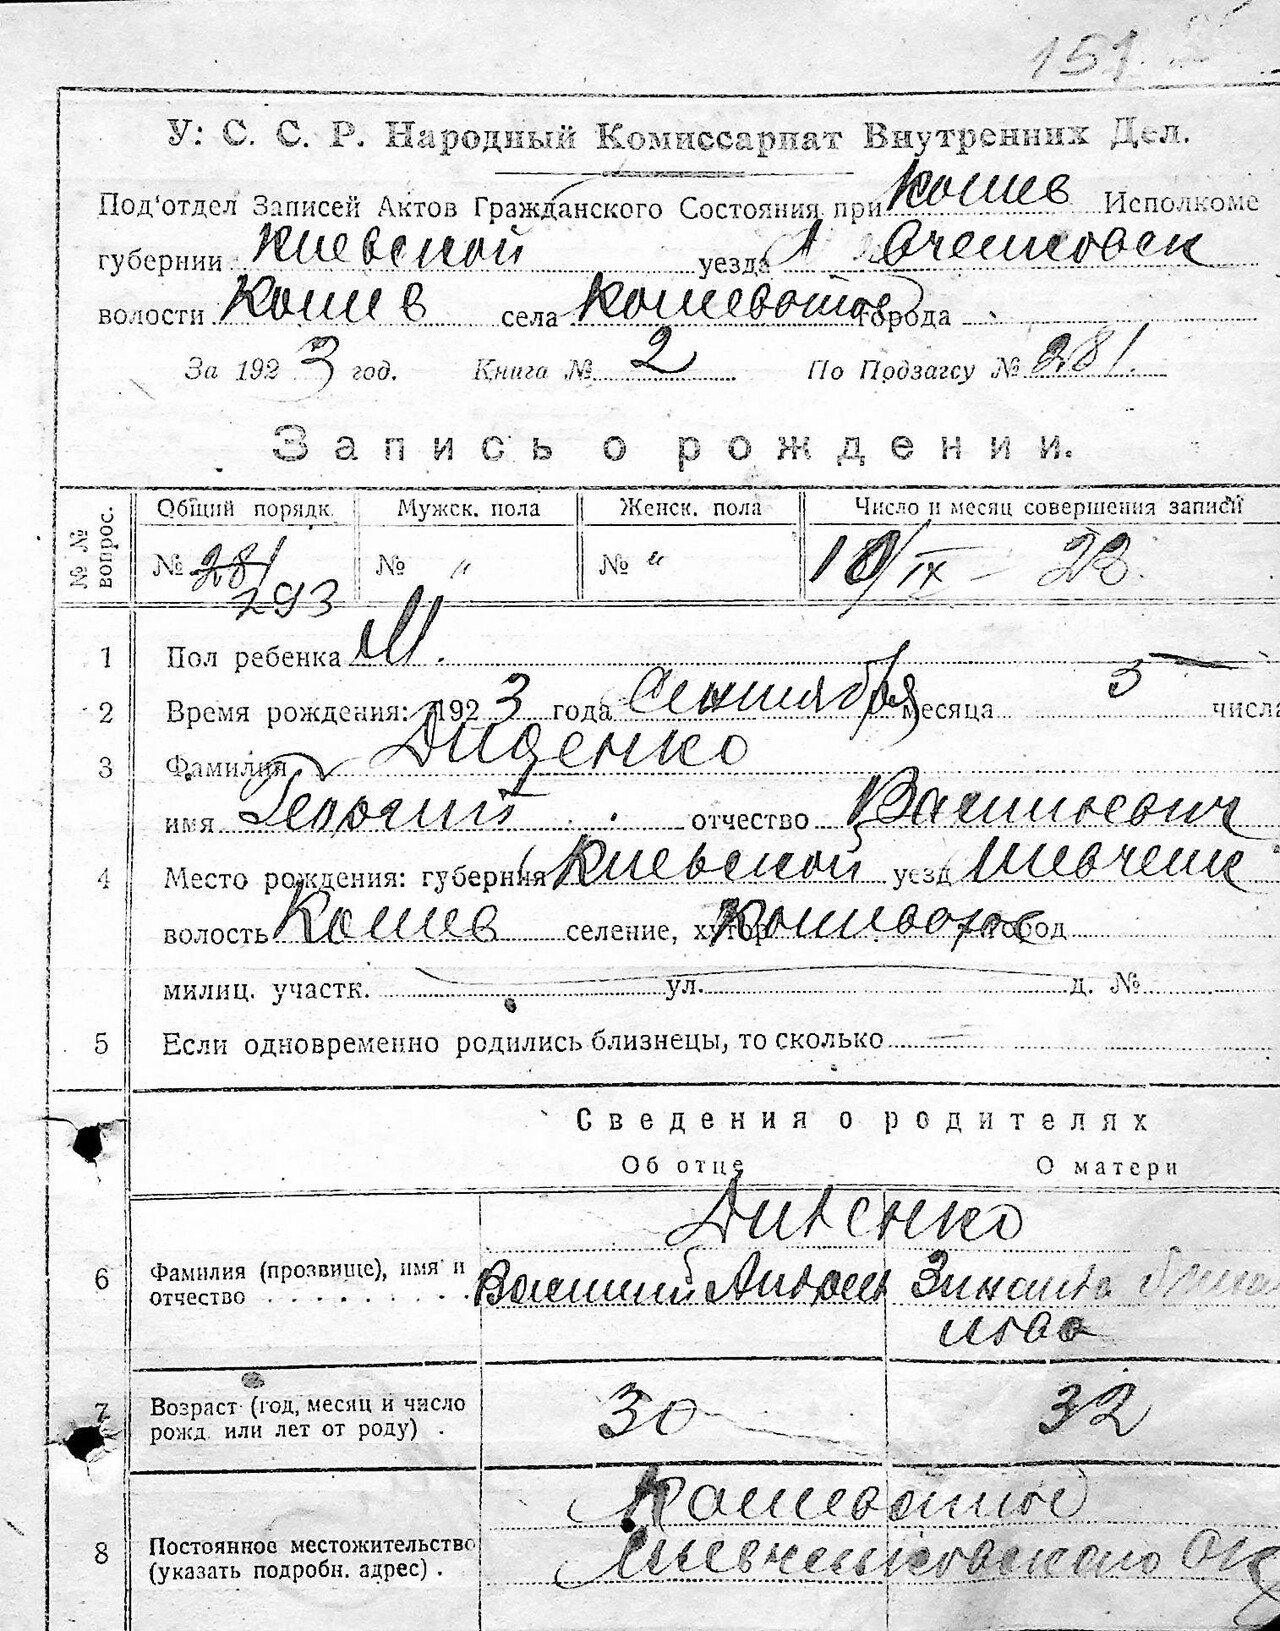 151
У. С. С. Р. Народный Комиссариат Внутренних Дел.
Под'отдел Записей Актов Гражданского Состояния при Кошев Исполкоме
губернии Киевской уезда
волости Кошев села Кошеватое города
За 1923 год. Книга № 2 По Подзагсу № 281.
Запись о рождении.
№ № вопрос. Общий порядк. Мужск. пола Женск. пола Число и месяц совершения записи
№ 281 № " № " 10/IX - 23.
293
1 Пол ребенка М.
2 Время рождения: 1923 года Сентября месяца 5 числа
3 Фамилия Диденко
имя Георгий отчество Васильевич
4 Место рождения: губерния Киевской уезд Шевченк
волость Кошев селение, хутор Кошеватое город
милиц. участк. ул. д. №
5 Если одновременно родились близнецы, то сколько
Сведения о родителях
Об отце О матери
Диденко
6 Фамилия (прозвище), имя и Василий Андрее Зинаида
отчество
7 Возраст (год, месяц и число 30 32
рожд. или лет от роду) .
Кошеватое
8 Постоянное местожительство Шевченковского Ок
(указать подробн. адрес) .